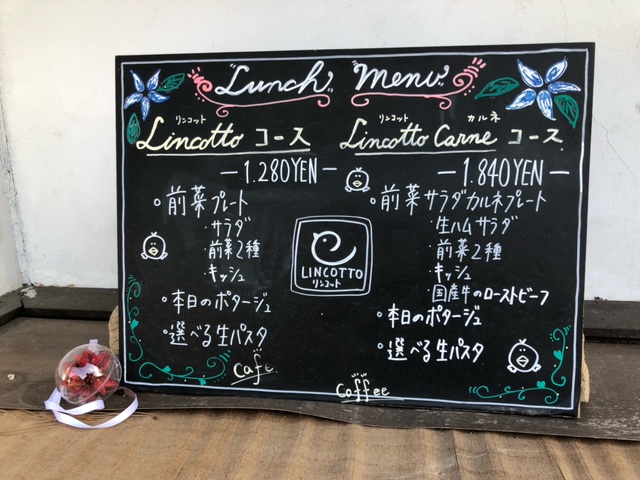 Lunch Menu
リンコット
Lincotto コース
—1.280YEN—
・前菜プレート
・サラダ
・前菜2種
・キッシュ
・本日のポタージュ
・選べる生パスタ
cafe
リンコット カルネ
Lincotto Carne コース
—1.840YEN—
・前菜サラダカルネプレート
・生ハムサラダ
・前菜2種
・キッシュ
・国産牛のローストビーフ
・本日のポタージュ
・選べる生パスタ
LINCOTTO
リンコット
coffee